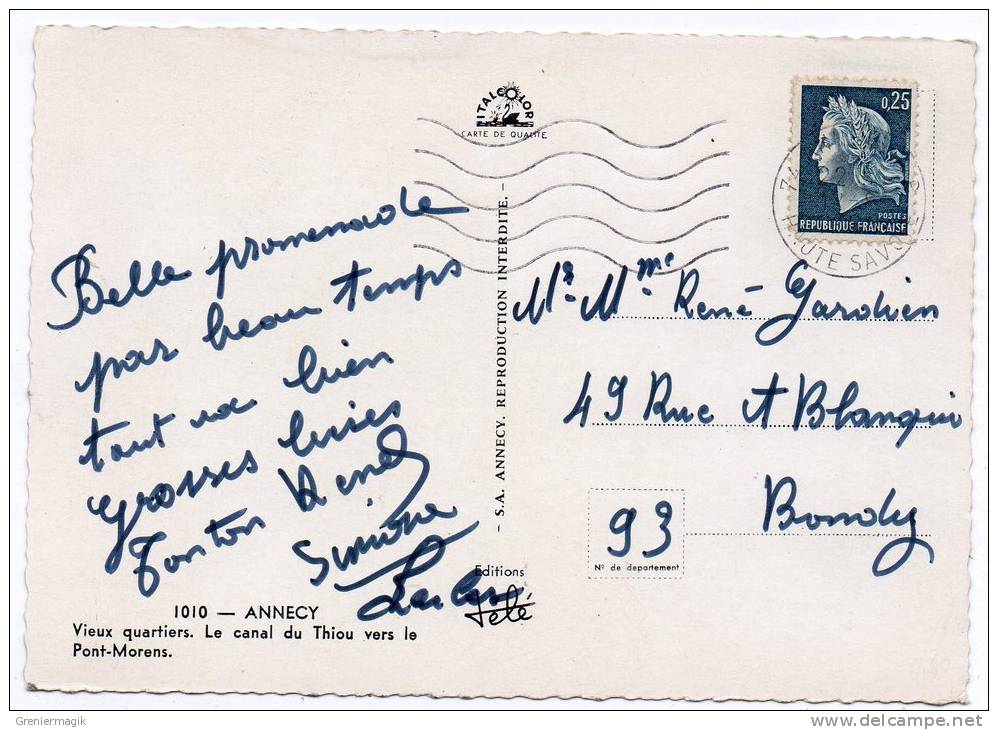 ITALCOLOR
CARTE DE QUALITE
0,25
POSTES
REPUBLIQUE FRANÇAISE
74
HAUTE SAVOIE
Belle promenade
par beau temps
tout va bien
grosses bises
Tonton René
Simone
Mr. Mme René Gardien
49 Rue A Blanqui
93 Bondy
N° de departement
- S.A. ANNECY. REPRODUCTION INTERDITE. -
Editions
télé
1010 — ANNECY
Vieux quartiers. Le canal du Thiou vers le
Pont-Morens.
Greniermagik
delcampe.net